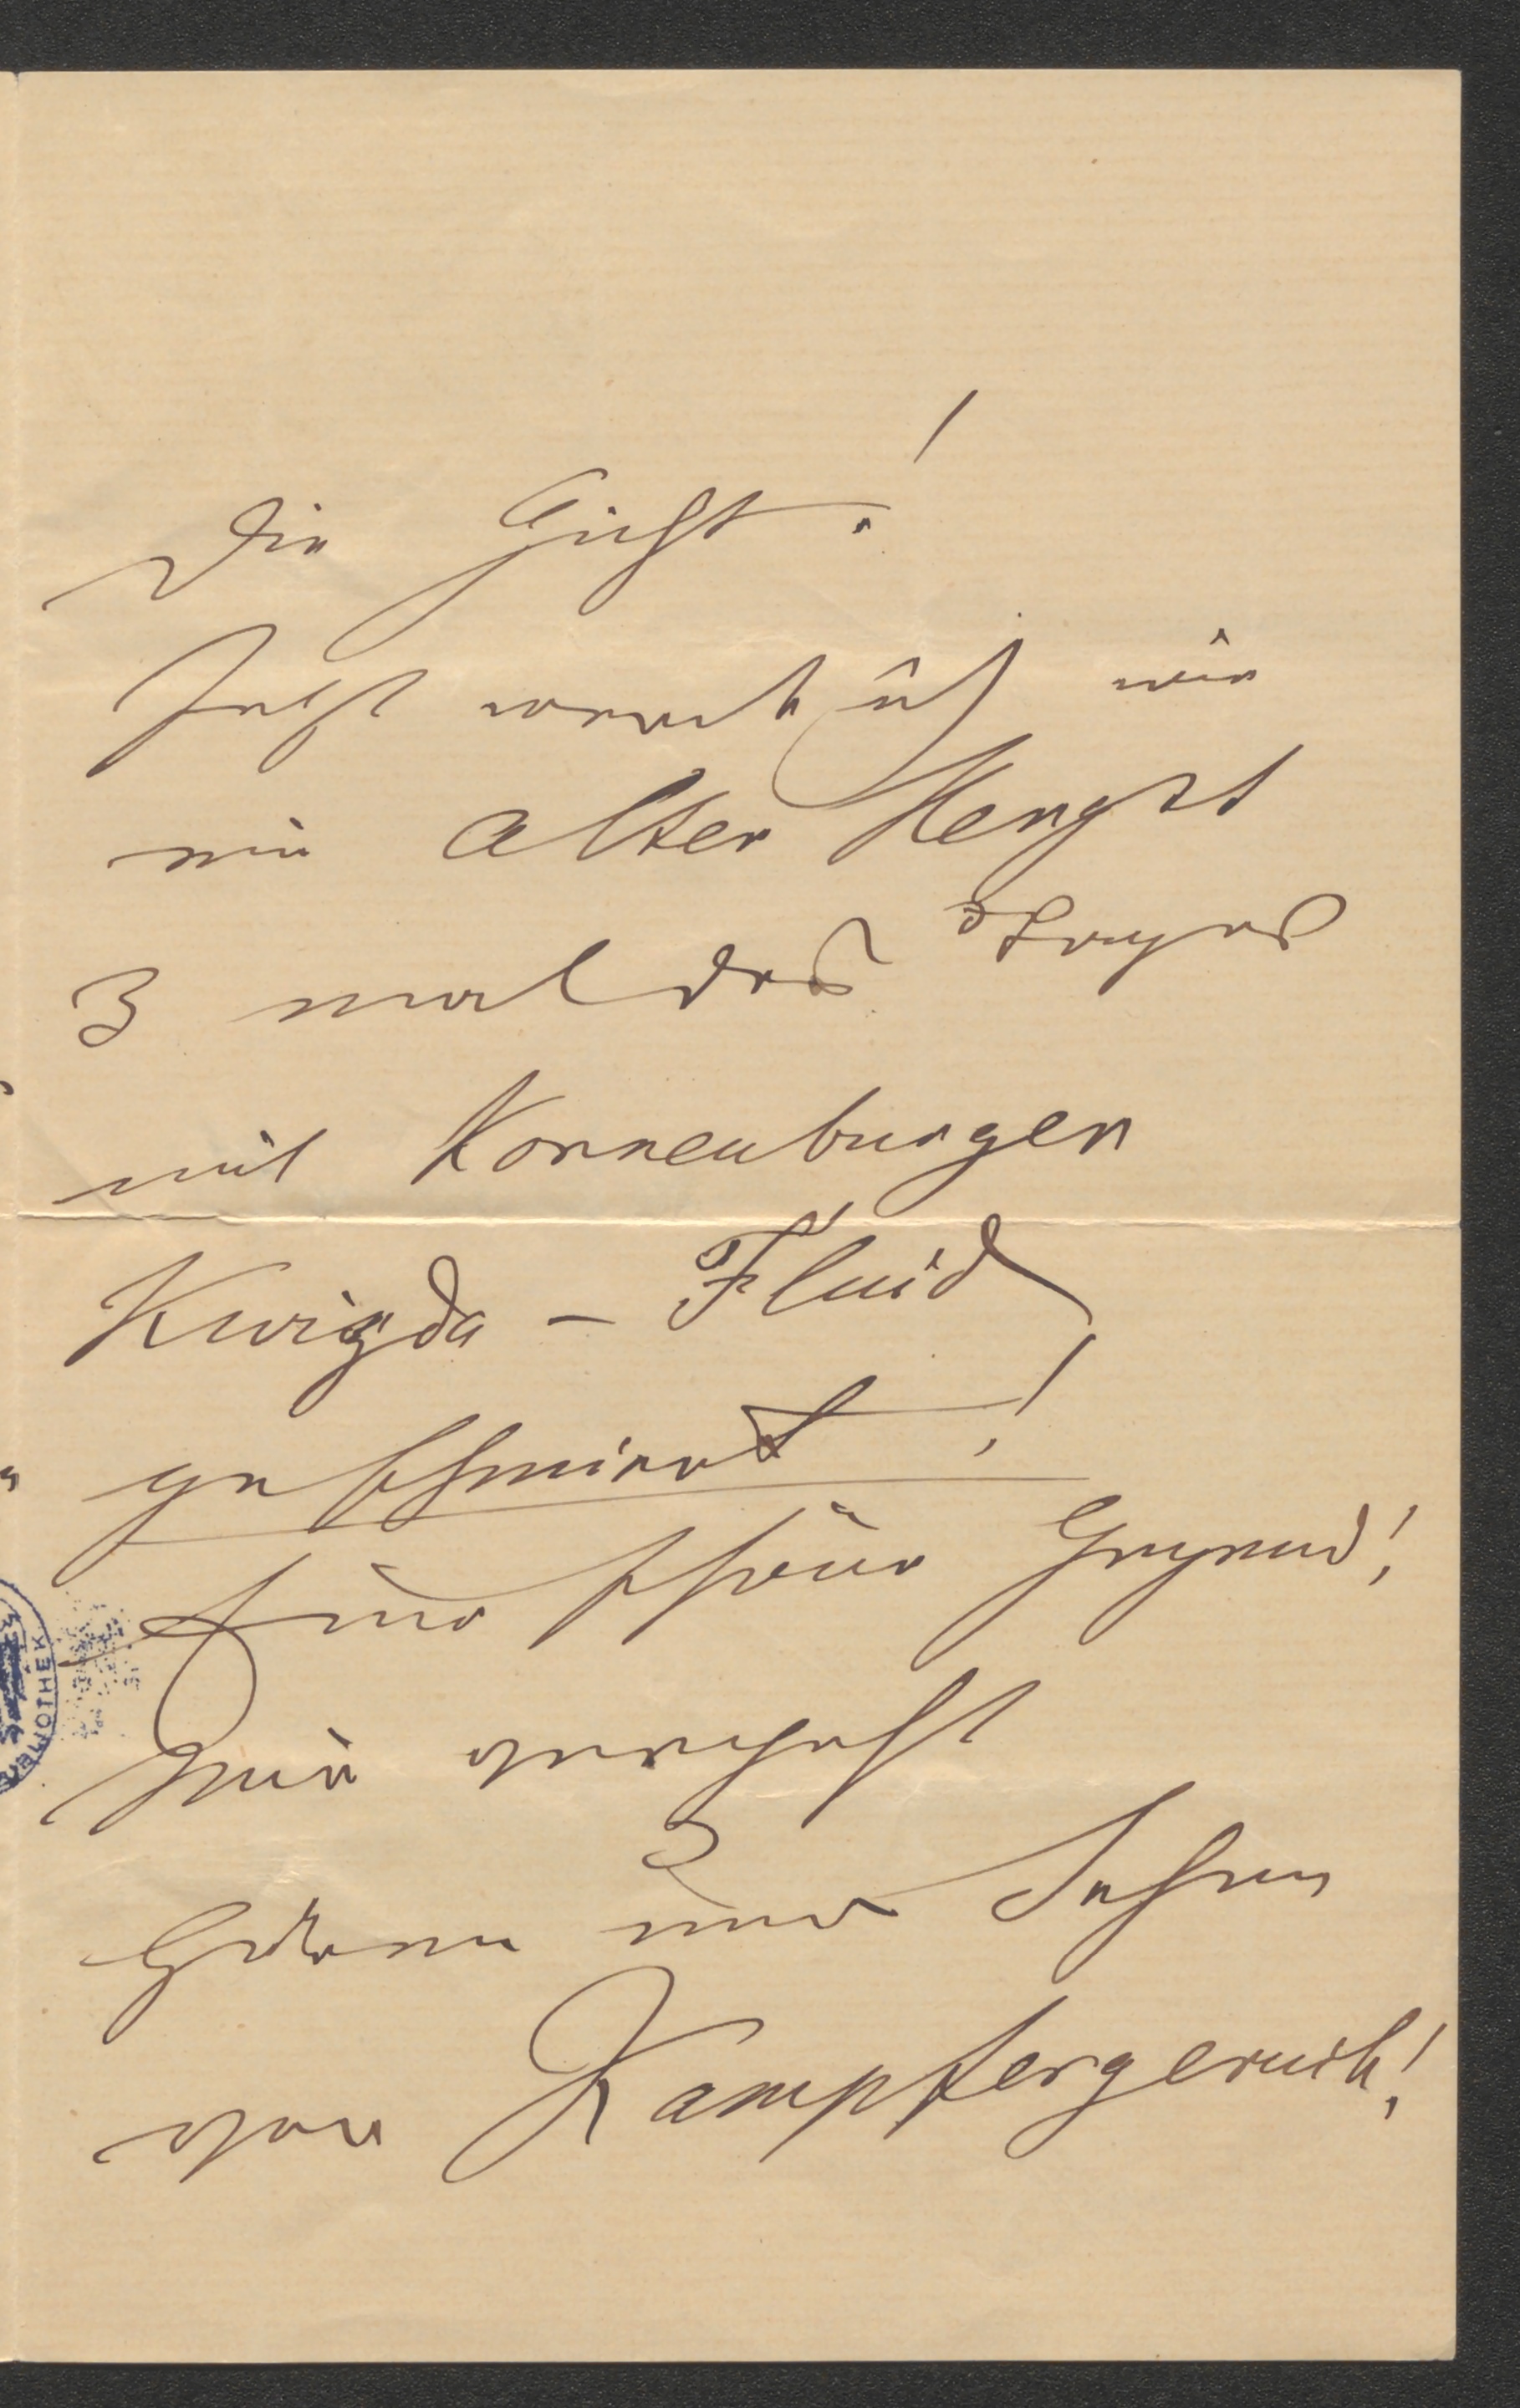 Die Gicht!
Jetzt werde ich wie
ein alter Hengst
3 mal des Tages
mit Korneuburger
Kwizda - Fluid
geschmiert!
Eine schöne Gegend!
Mir vergeht
Hören und Sehen
von Kampfergeruch!
BIBLIOTHEK